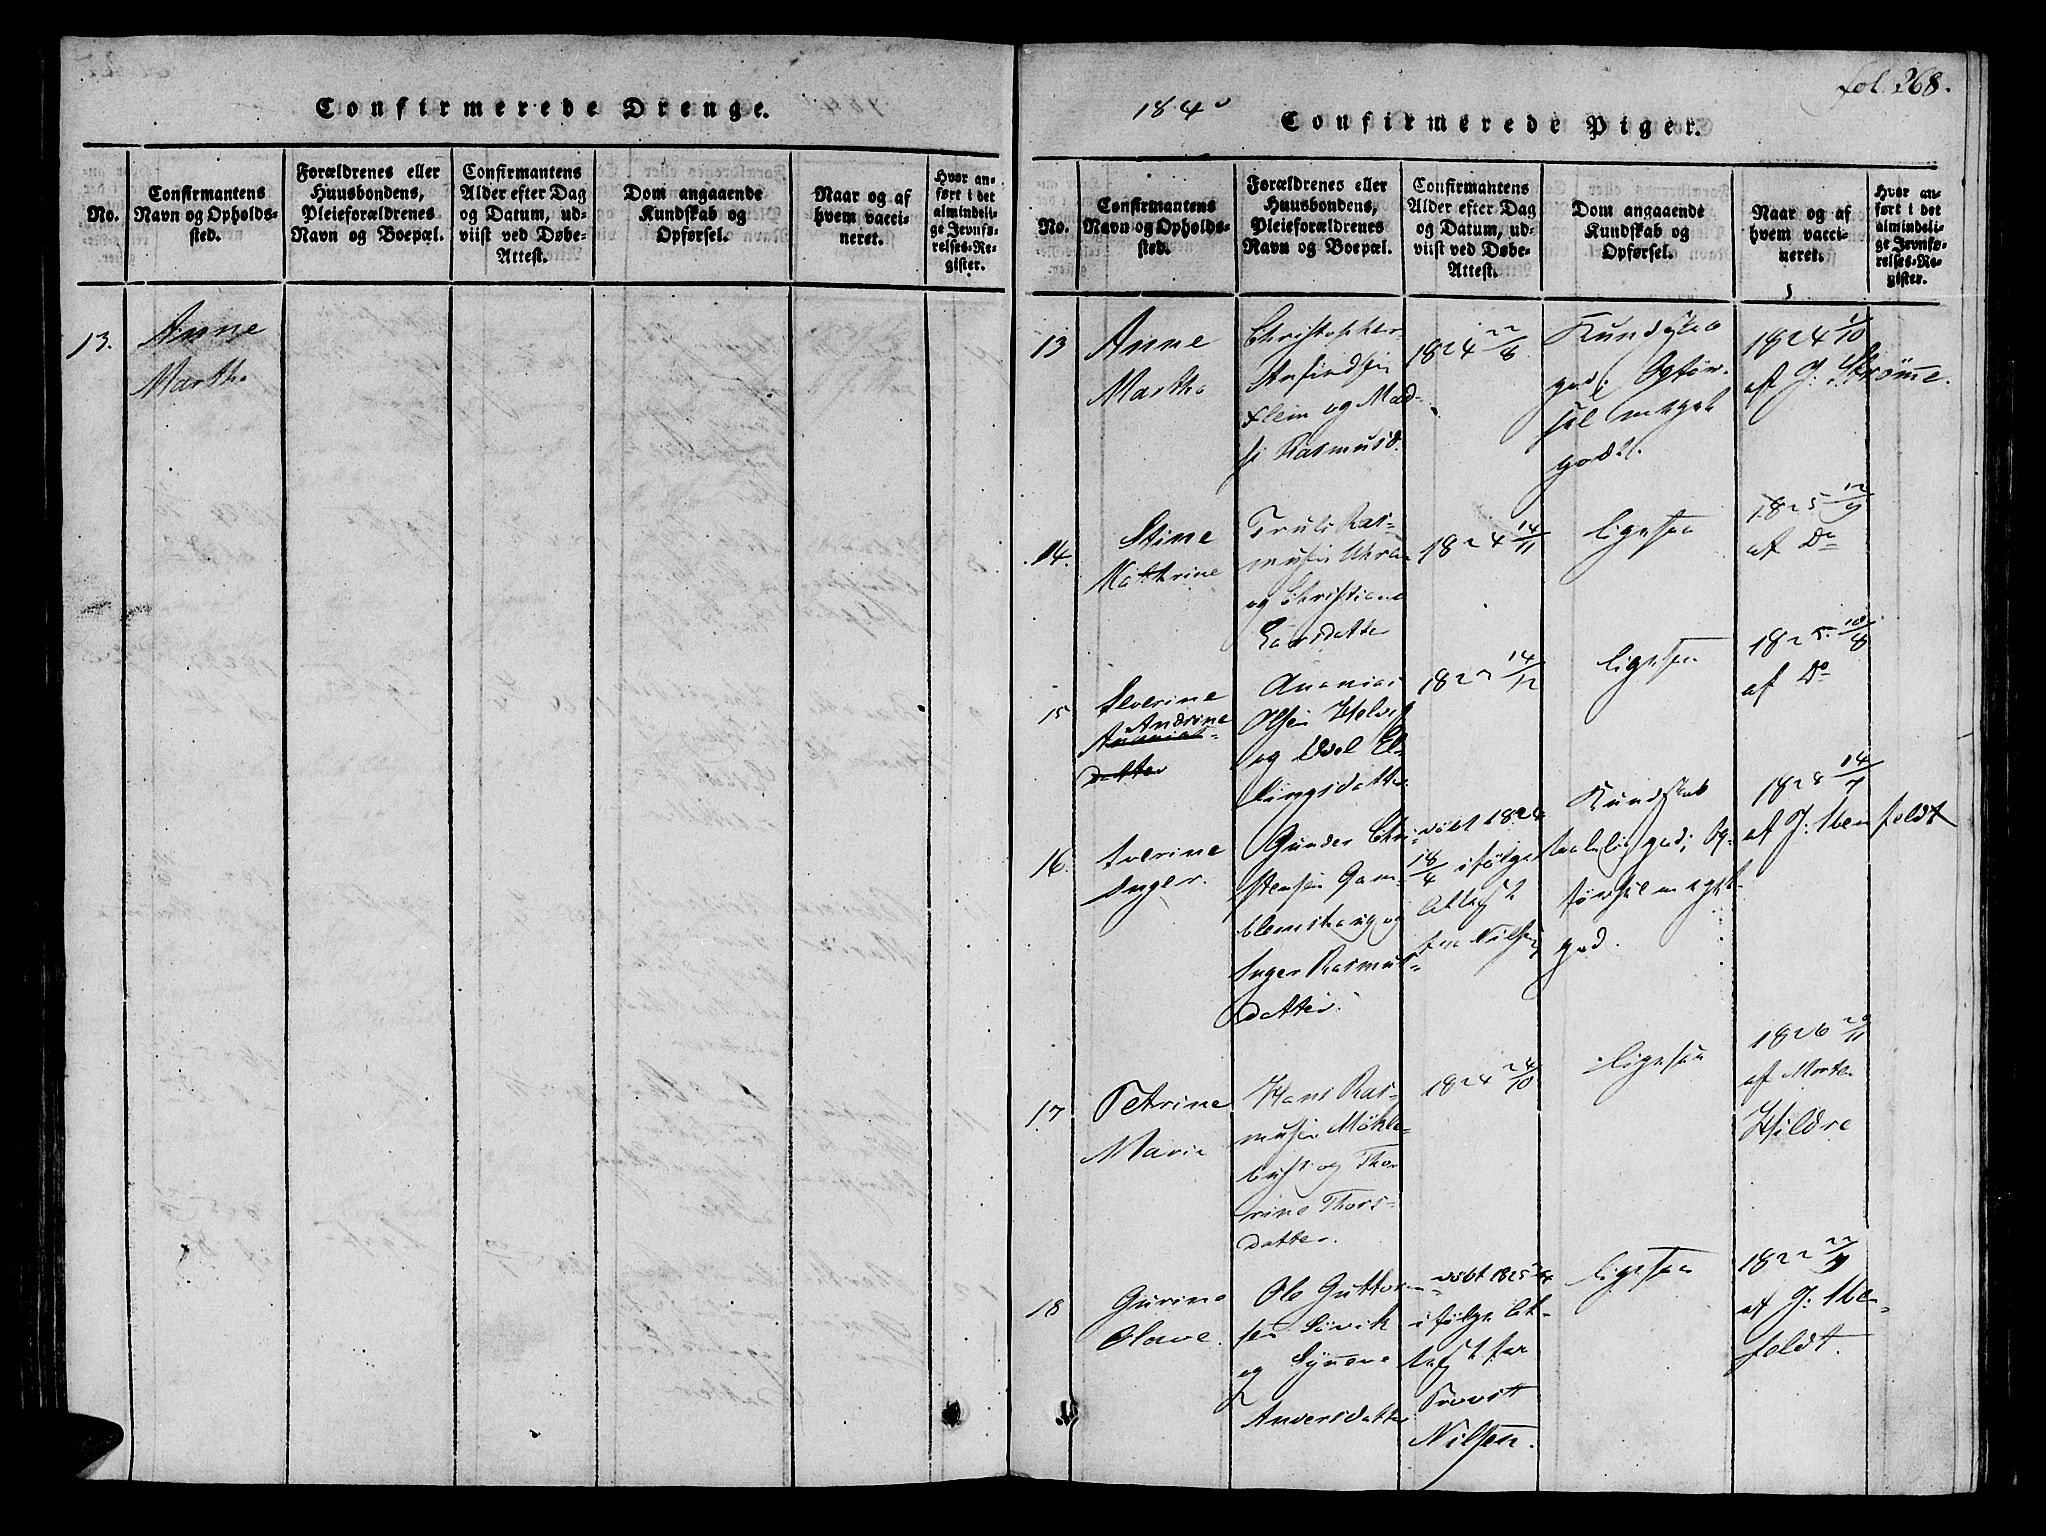 Confirmerede Drenge.
No.
Confirmantens
Navn og Opholds-
sted.
Forældrenes eller
Huusbondens,
Pleieforældrenes
Navn og Boepæl.
Confirmantens
Alder efter Dag
og Datum, ud-
viist ved Døbe-
Attest.
Dom angaaende
Kundskab og
Opførsel.
Naar og af
hvem vacci-
neret.
Hvor an-
ført i det
almindeli-
ge Jevnfø-
relses-Re-
gister.
13.
Anne
Martha
fol. 268.
1840
Confirmerede Piger.
No.
Confirmantens
Navn og Opholds-
sted.
Forældrenes eller
Huusbondens,
Pleieforældrenes
Navn og Boepæl.
Confirmantens
Alder efter Dag
og Datum, ud-
viist ved Døbe-
Attest.
Dom angaaende
Kundskab og
Opførsel.
Naar og af
hvem vacci-
neret.
Hvor an-
ført i det
almindeli-
ge Jevnfø-
relses-Re-
gister.
13
Anne
Martha
Christopher
Flem og Mad-
si Rasmusd.
1824 22/8
Kundskab
god; Opfør-
sel meget
god.
1824 1/10
af J: Strømme.
14.
Stine
Kathrine
Truls Ras-
musen Uhra
og Christiane
Larsdatter
1824 14/11
ligesaa
1825 12/9
af Do
15
Severine
Andrine
Ananias-
datter
Ananias
Olsen Helvig
og Edel El-
lingsdatter
14/12
ligesaa
1825 10/8
af Do
16.
Sverine
Inger.
Gunder Chri-
stensen Gam-
lemshaug og
Inger Rasmus-
datter.
døbt 1824
18/4 ifølge
Attest
fra Nilsen
Kundskab
taalelig god; Op-
førsel meget
god.
14/7
af J: Ubenfoldt
17
Petrine
Marie
Hans Ras-
musen Møkle-
bust og Tho-
rine Thors-
datter.
1824 24/10
ligesaa
1826 20/11
af Morten
Hildre
18
Gurine
Olave.
Ole Guttorm-
sen Søvik
og Synneve
Andersdatter
døbt 1825
ifølge At-
test fra
Provst
Nilsen.
ligesaa
af J: Uben-
foldt.